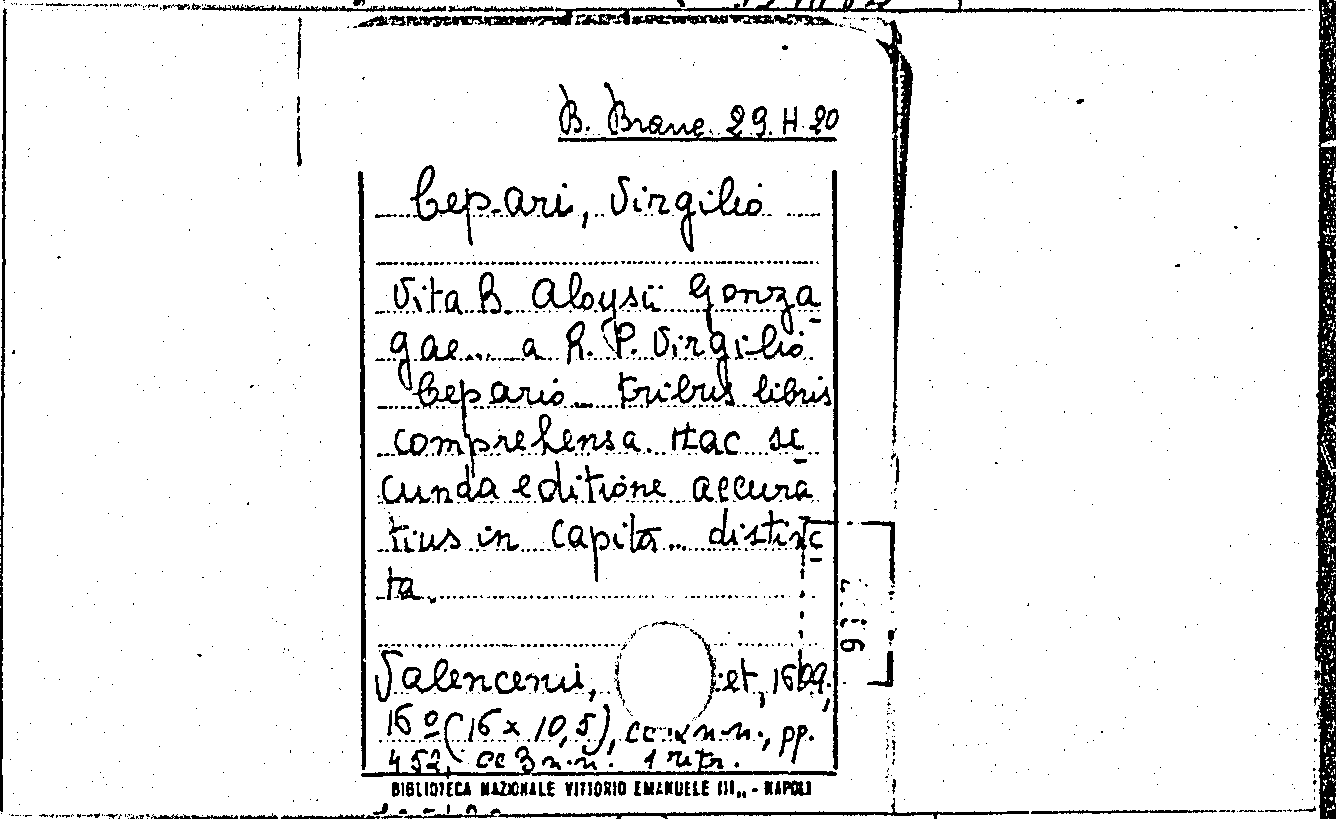 B. Branc. 29. H 20
Cepari, Virgilio
Vita B. Aloysii Gonza
gae... a R. P. Virgilio
Cepario... tribus libris
comprehensa. Hac se
cunda editione accura
tius in capita... distinc
ta.
Valencenis, et, 1609,
16º (16 x 10,5), cc. n.n., pp.
452, cc 3 n.n. 1 ritr.
BIBLIOTECA NAZIONALE VITTORIO EMANUELE III,, - NAPOLI